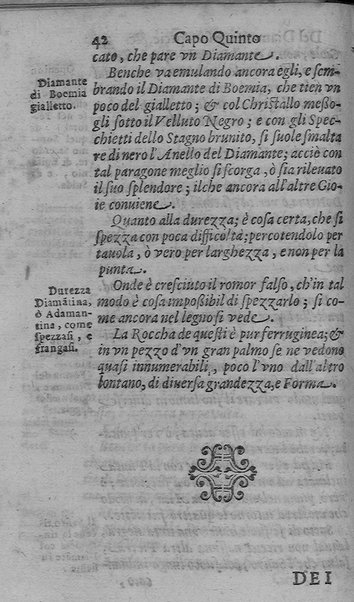 42 Capo Quinto
cato, che pare vn Diamante.
Benche va emulando ancora egli, e sem-
Diamante
di Boemia
gialletto.
brando il Diamante di Boemia, che tien vn
poco del gialletto; & col Christallo messo-
gli sotto il Velluto Negro; e con gli Spec-
chietti dello Stagno brunito, si suole smalta
re di nero l'Anello del Diamante; acciè con
tal paragone meglio si scorga, ò sia rileuato
il suo splendore; ilche ancora all'altre Gio-
ie conuiene.
Quanto alla durezza; è cosa certa, che si
spezza con poca difficoltà; percotendolo per
tauola, ò vero per larghezza, e non per la
punta.
Durezza
Diamãtina,
ò Adaman-
tina, come
spezzasi, e
frangasi.
Onde è cresciuto il romor falso, ch'in tal
modo è cosa impossibil di spezzarlo; si co-
me ancora nel legno si vede.
La Roccha de questi è pur ferruginea; &
in vn pezzo d'vn gran palmo se ne vedono
quasi innumerabili, poco l'vno dall'altro
lontano, di diuersa grandezza, e Forma.
DEI